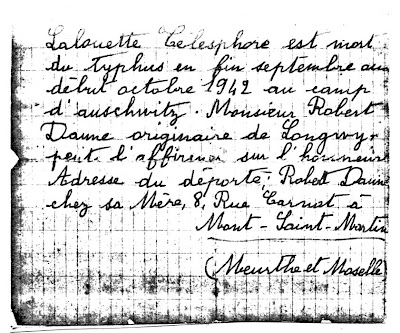 Lalouette Télesphore est mort
du typhus en fin septembre au
début octobre 1942 au camp
d'auschwitz. Monsieur Robert
Daune originaire de Longwy
peut l'affirmer sur l'honneur
Adresse du déporté; Robert Daune
chez sa Mère, 8, Rue Carnot à
Mont-Saint-Martin
(Meurthe et Moselle